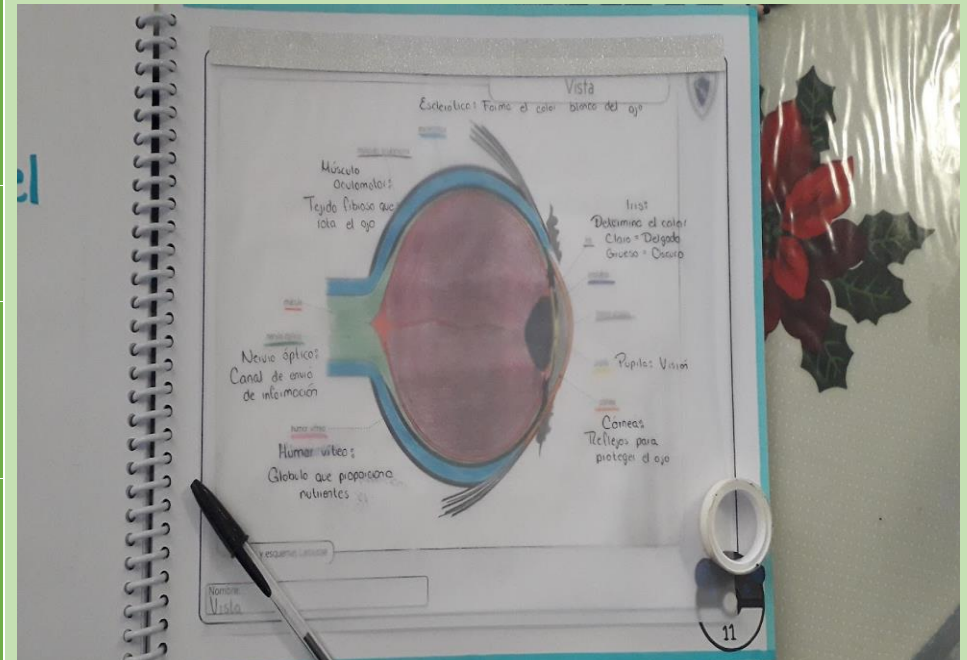 el
Vista
Esclerotica: Forma el color blanco del ojo
Músculo
Oculomotor:
Tejido fibroso que
rota el ojo
Iris:
Determina el color
Claro = Delgado
Grueso = Oscuro
mácula
nervio óptico
Nervio óptico:
Canal de envío
de información
Pupila: Visión
humor vítreo
Humor vítreo:
Globulo que proporciona
nutrientes
Córnea:
Reflejos para
proteger el ojo
y esquemas
Nombre:
Vista
11